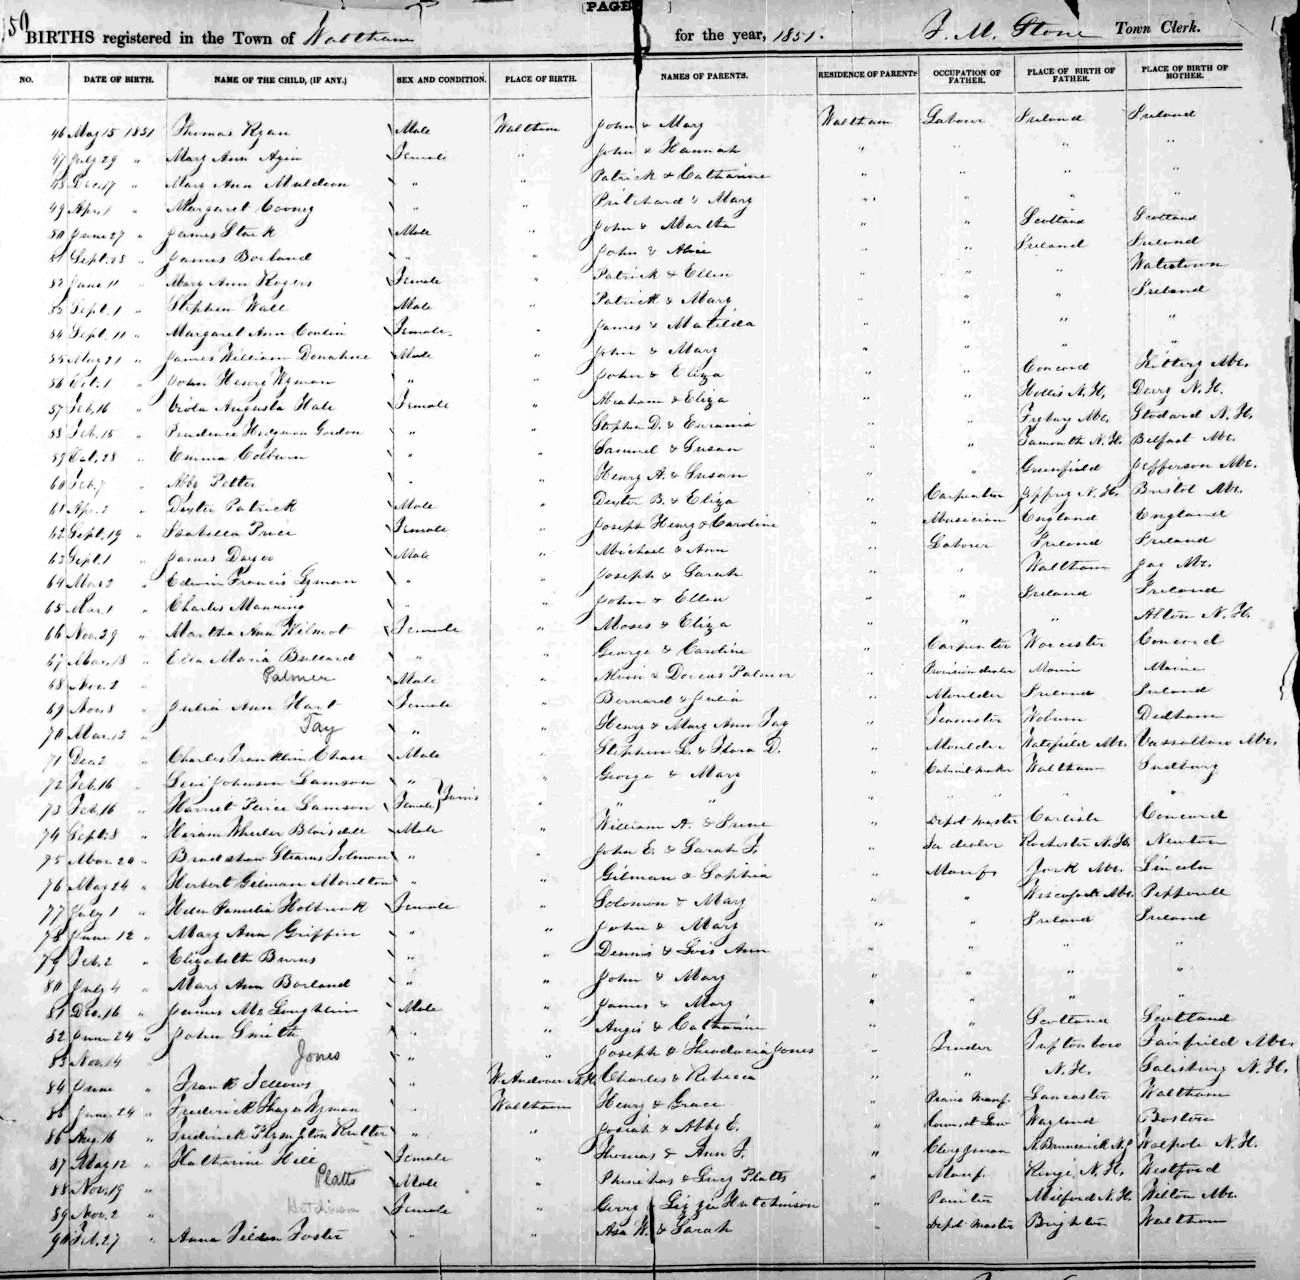 [PAGE ]
150
BIRTHS registered in the Town of Waltham for the year, 1851. Town Clerk.
NO. DATE OF BIRTH. NAME OF THE CHILD, (IF ANY.) SEX AND CONDITION. PLACE OF BIRTH. NAMES OF PARENTS. RESIDENCE OF PARENTS OCCUPATION OF FATHER. PLACE OF BIRTH OF FATHER. PLACE OF BIRTH OF MOTHER.
46 May 15 1851 Thomas Ryan Male Waltham John & Mary Waltham Labour Ireland Ireland
47 July 29 " Mary Ann Agin Female " John & Hannah " " " "
48 Dec. 17 " Mary Ann Muldoon " " Patrick & Catharine " " " "
49 Apr. 1 " Margaret Cooney " " Pritchard & Mary " " " "
50 June 27 " James Stark Male " John & Martha " " Scotland Scotland
51 Sept. 28 " James Borland " " John & Alice " " Ireland Ireland
52 June 11 " Mary Ann Rogers Female " Patrick & Ellen " " " Watertown
53 Sept. 1 " Stephen Wall Male " Patrick & Mary " " " Ireland
54 Sept. 11 " Margaret Ann Conlin Female " James & Matilda " " " "
55 May 21 " James William Donahue Male " John & Mary " " " "
56 Oct. 1 " John Henry Wyman " " John & Eliza " " Concord Kittery Me.
57 Feb. 16 " Viola Augusta Hale Female " Abraham & Eliza " " Hollis N. H. Derry N. H.
58 Feb. 15 " Prudence Hodgman Gordon " " Stephen D. & Eurania " " Fryburg Me. Stodard N. H.
59 Oct. 28 " Emma Colburn " " Samuel & Susan " " Tamouth N. H. Belfast Me.
60 Feb. 7 " Abby Potter " " Henry A. & Susan " " Greenfield Jefferson Me.
61 Apr. 2 " Dexter Patrick Male " Dexter B. & Eliza " Carpenter Jeffrey N. H. Bristol Me.
62 Sept. 19 " Isabella Price Female " Joseph Henry & Caroline " Musician England England
63 Sept. 1 " James Male " Michael & Ann " Labour Ireland Ireland
64 Mar. 2 " Edwin Francis Lyman " " Joseph & Sarah " " Waltham Jay Me.
65 Mar. 1 " Charles Manning " " John & Ellen " " Ireland Ireland
66 Nov. 29 " Martha Ann Wilmot Female " Moses & Eliza " " " Alton N. H.
67 Mar. 18 " Ella Maria Bullard " " George & Caroline " Carpenter Worcester Concord
68 Nov. 2 " Palmer Male " Alvin & Dorcas Palmer " Provision dealer Maine Maine
69 Nov. 8 " Julia Ann Hart Female " Bernard & Julia " Moulder Ireland Ireland
70 Mar. 13 " Fay " " Henry & Mary Ann Fay " Teamster Woburn Dedham
71 Dec. 2 " Charles Franklin Chase Male " Stephen L. & Flora D. " Moulder Watefield Me. Vassalboro Me.
72 Feb. 16 " Levi Johnson Lamson " Twins " George & Mary " Cabinet maker Waltham Sudbury
73 Feb. 16 " Harriet Peirce Lamson Female " " " " " " "
74 Sept. 8 " Hiram Wheeler Blaisdell Male " William A. & Irene " Depot master Carlisle Concord
75 Mar. 20 " Bradshaw Stearns Tolman " " John E. & Sarah F. " Ice dealer Rochester N. H. Newton
76 May 24 " Herbert Gilman Moulton " " Gilman & Sophia " Manuf. York Me. Lincoln
77 July 1 " Helen Pamelia Holbrook Female " Solomon & Mary " " Wiscasset Me. Pepperell
78 June 12 " Mary Ann Griffin " " John & Mary " " Ireland Ireland
79 Feb. 2 " Elizabeth Burns " " Dennis & Lois Ann " " " "
80 July 4 " Mary Ann Borland " " John & Mary " " " "
81 Dec. 16 " James McLaughlin Male " James & Mary " " " "
82 June 24 " John Smith " " Angis & Catharine " " Scotland Scotland
83 Nov. 14 " Jones " " Joseph & Theodocia Jones " Tender Tuftonboro Fairfield Me.
84 June " Frank Fellows " W. Andover N.H. Charles & Rebecca " " N. H. Salisbury N. H.
85 June 24 " Frederick Thayer Wyman " Waltham Henry & Grace " Piano Manf. Lancaster Waltham
86 Aug. 16 " Frederick Plympton Rutter " " Josiah & Abby E. " Couns. at Law Wayland Boston
87 May 12 " Katharine Hill Female " Thomas & Ann F. " Clergyman N. Brunswick N.J. Walpole N. H.
88 Nov. 19 " Platts Male " Phinehas & Lucy Platts " Manf. Ringe N. H. Westford
89 Nov. 2 " Hutchinson Female " Gerry & Lizzie Hutchinson " Painter Milford N. H. Wilton Me.
90 Feb. 27 " Anna Tilden Foster " " Asa W. & Sarah " Depot Master Brighton Waltham